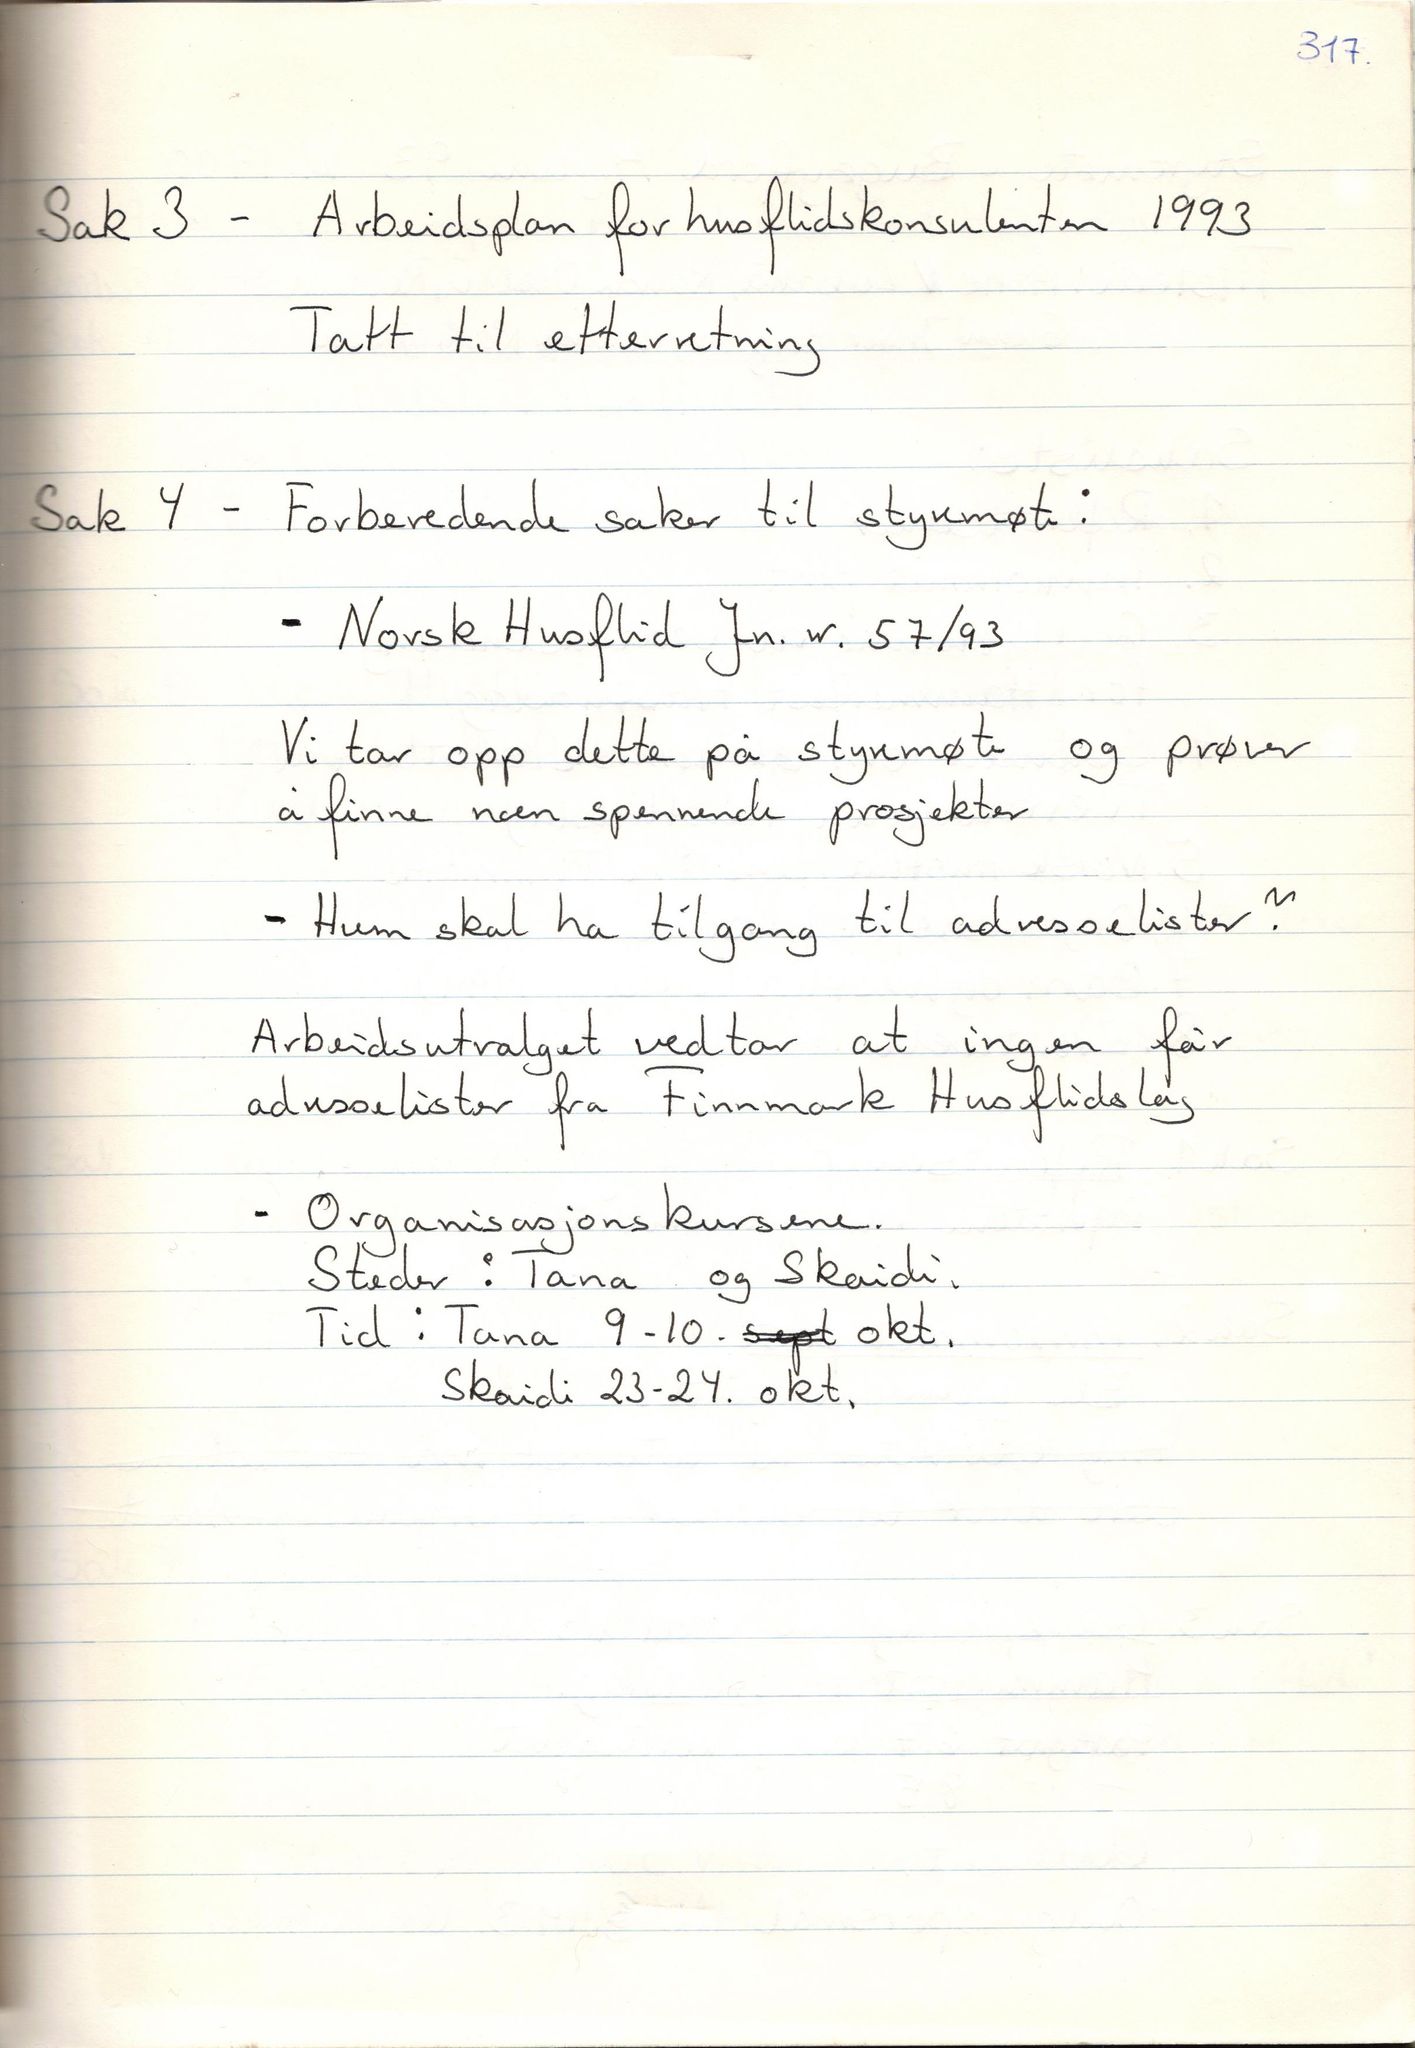 317.
Sak 3 - Arbeidsplan for husflidskonsulenten 1993
Tatt til etterretning
Sak 4 - Forberedende saker til styremøte:
- Norsk Husflid Jn. nr. 57/93
Vi tar opp dette på styremøte og prøver
å finne noen spennende prosjekter
- Hvem skal ha tilgang til adresselister?
Arbeidsutvalget vedtar at ingen får
adresselister fra Finnmark Husflidslag
- Organisasjonskursene.
Steder: Tana og Skaidi.
Tid: Tana 9-10. sept okt.
Skaidi 23-24. okt.